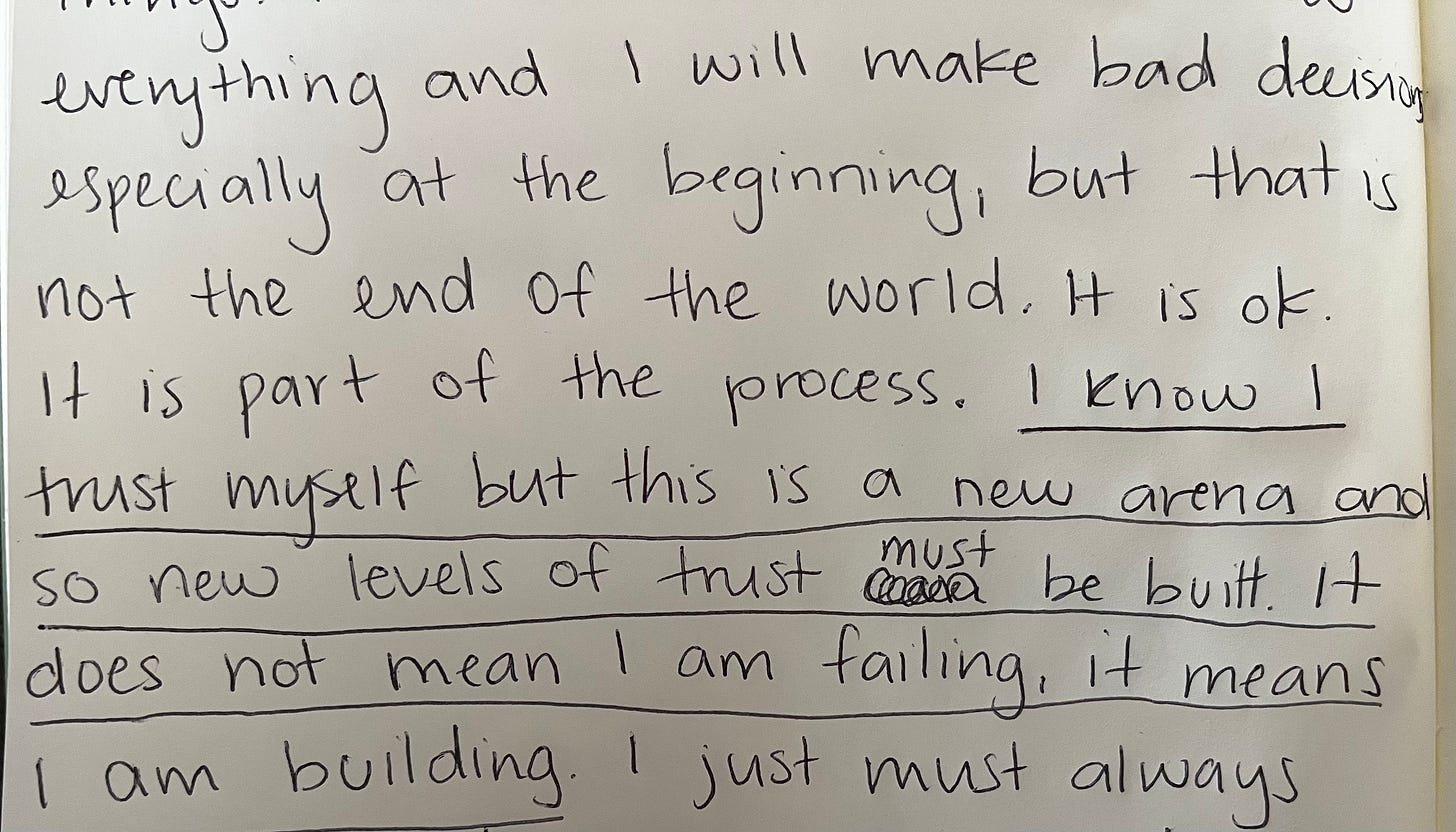 things.
everything and I will make bad decisions
especially at the beginning, but that is
not the end of the world. It is ok.
It is part of the process. I know I
trust myself but this is a new arena and
so new levels of trust must be built. It
does not mean I am failing, it means
I am building. I just must always